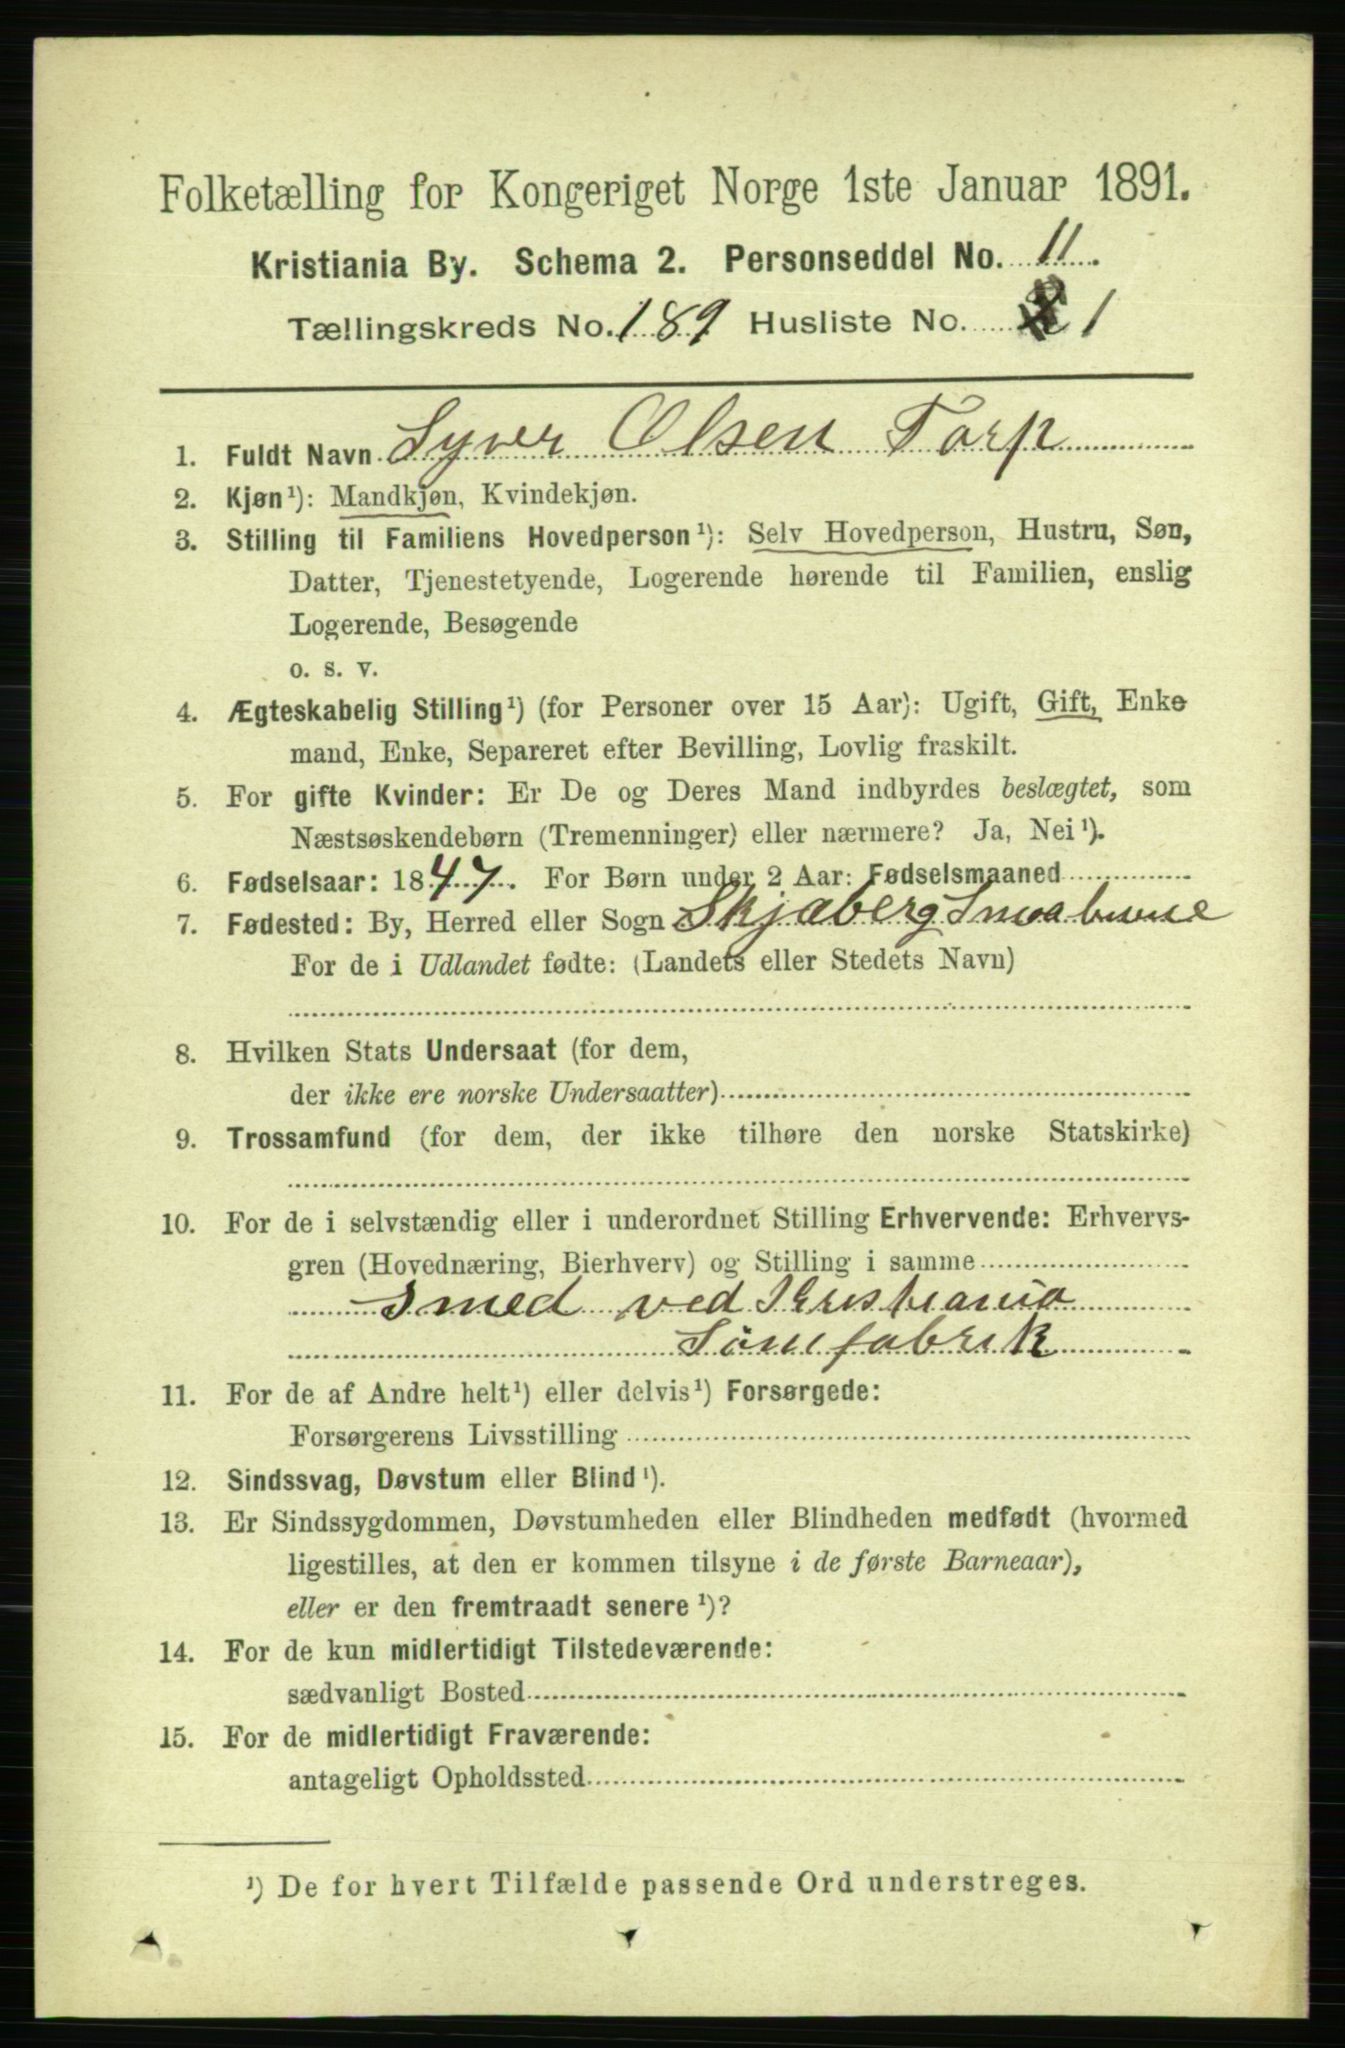 Folketælling for Kongeriget Norge 1ste Januar 1891.
Kristiania By. Schema 2. Personseddel No. 11.
Tællingskreds No. 189 Husliste No. 1
1. Fuldt Navn Syver Olsen Torp
2. Kjøn¹): Mandkjøn, Kvindekjøn.
3. Stilling til Familiens Hovedperson¹): Selv Hovedperson, Hustru, Søn,
Datter, Tjenestetyende, Logerende hørende til Familien, enslig
Logerende, Besøgende
o. s. v.
4. Ægteskabelig Stilling¹) (for Personer over 15 Aar): Ugift, Gift, Enke
mand, Enke, Separeret efter Bevilling, Lovlig fraskilt.
5. For gifte Kvinder: Er De og Deres Mand indbyrdes beslægtet, som
Næstsøskendebørn (Tremenninger) eller nærmere? Ja, Nei¹).
6. Fødselsaar: 1847. For Børn under 2 Aar: Fødselsmaaned
7. Fødested: By, Herred eller Sogn Skjæberg Smaalenene
For de i Udlandet fødte: (Landets eller Stedets Navn)
8. Hvilken Stats Undersaat (for dem,
der ikke ere norske Undersaatter)
9. Trossamfund (for dem, der ikke tilhøre den norske Statskirke)
10. For de i selvstændig eller i underordnet Stilling Erhvervende: Erhvervs-
gren (Hovednæring, Bierhverv) og Stilling i samme
Smed ved Kristiania
Sømfabrik
11. For de af Andre helt¹) eller delvis¹) Forsørgede:
Forsørgerens Livsstilling
12. Sindssvag, Døvstum eller Blind¹).
13. Er Sindssygdommen, Døvstumheden eller Blindheden medfødt (hvormed
ligestilles, at den er kommen tilsyne i de første Barneaar),
eller er den fremtraadt senere¹)?
14. For de kun midlertidigt Tilstedeværende:
sædvanligt Bosted
15. For de midlertidigt Fraværende:
antageligt Opholdssted
¹) De for hvert Tilfælde passende Ord understreges.